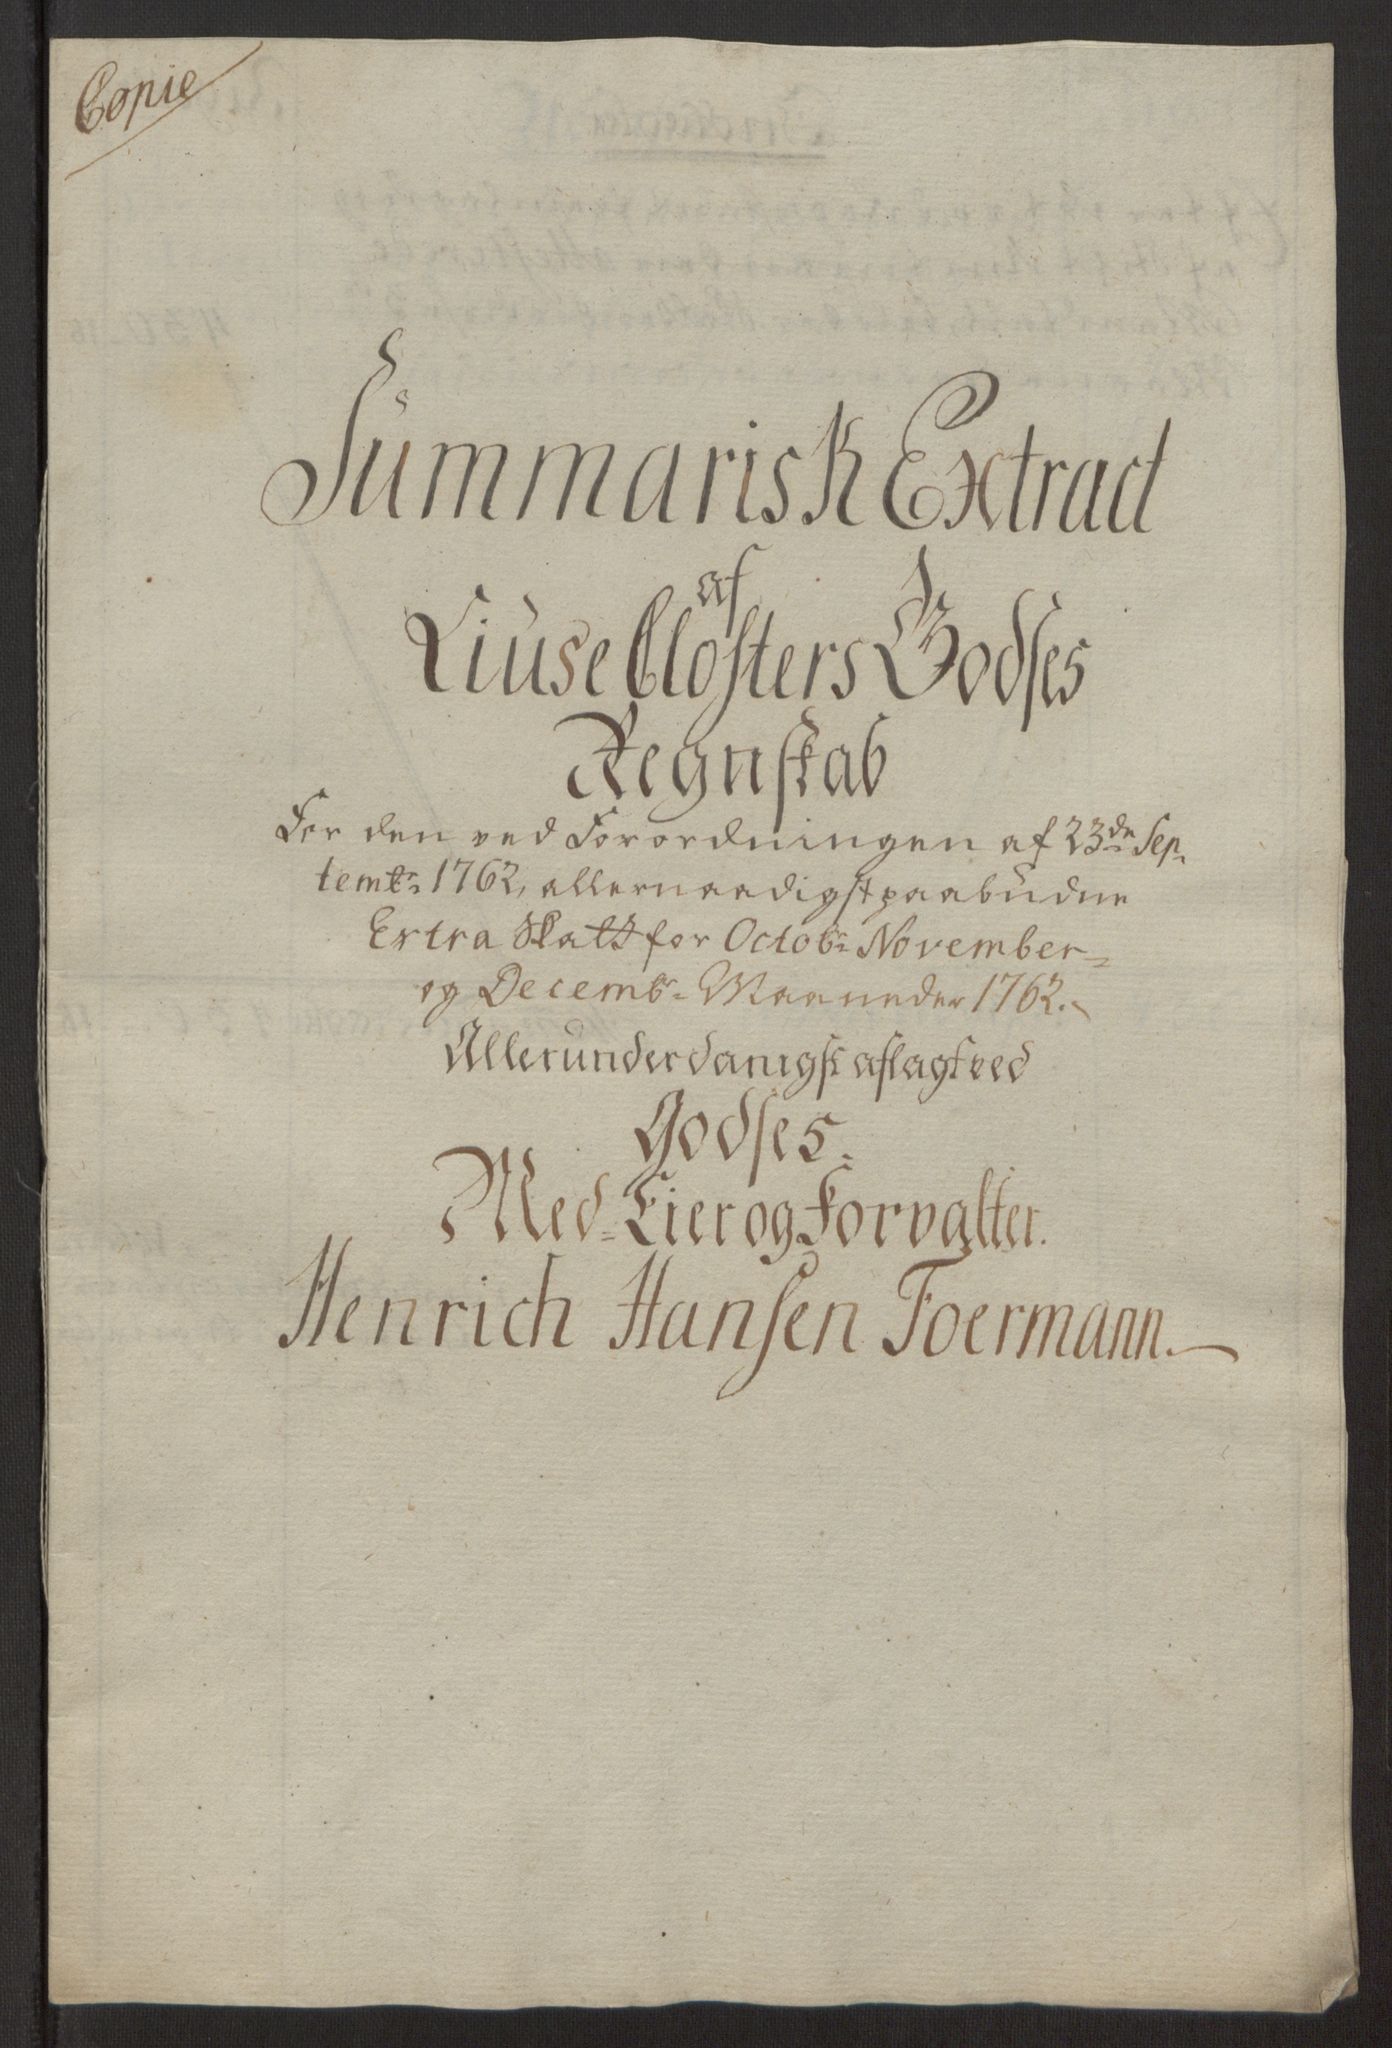 Copie
Summarisk Extract
af
Liuse Closters Godses
Regnskab
For den ved Forordningen af 23de Sep-
tembr: 1762, allernaadigst paabudne
Extra Skatt for Octobr: November
og Decembr: Maaneder 1762.
Allerunderdanigst aflagt ved
Godses
Med-Eier og Forvalter.
Henrich Hansen Foermann.